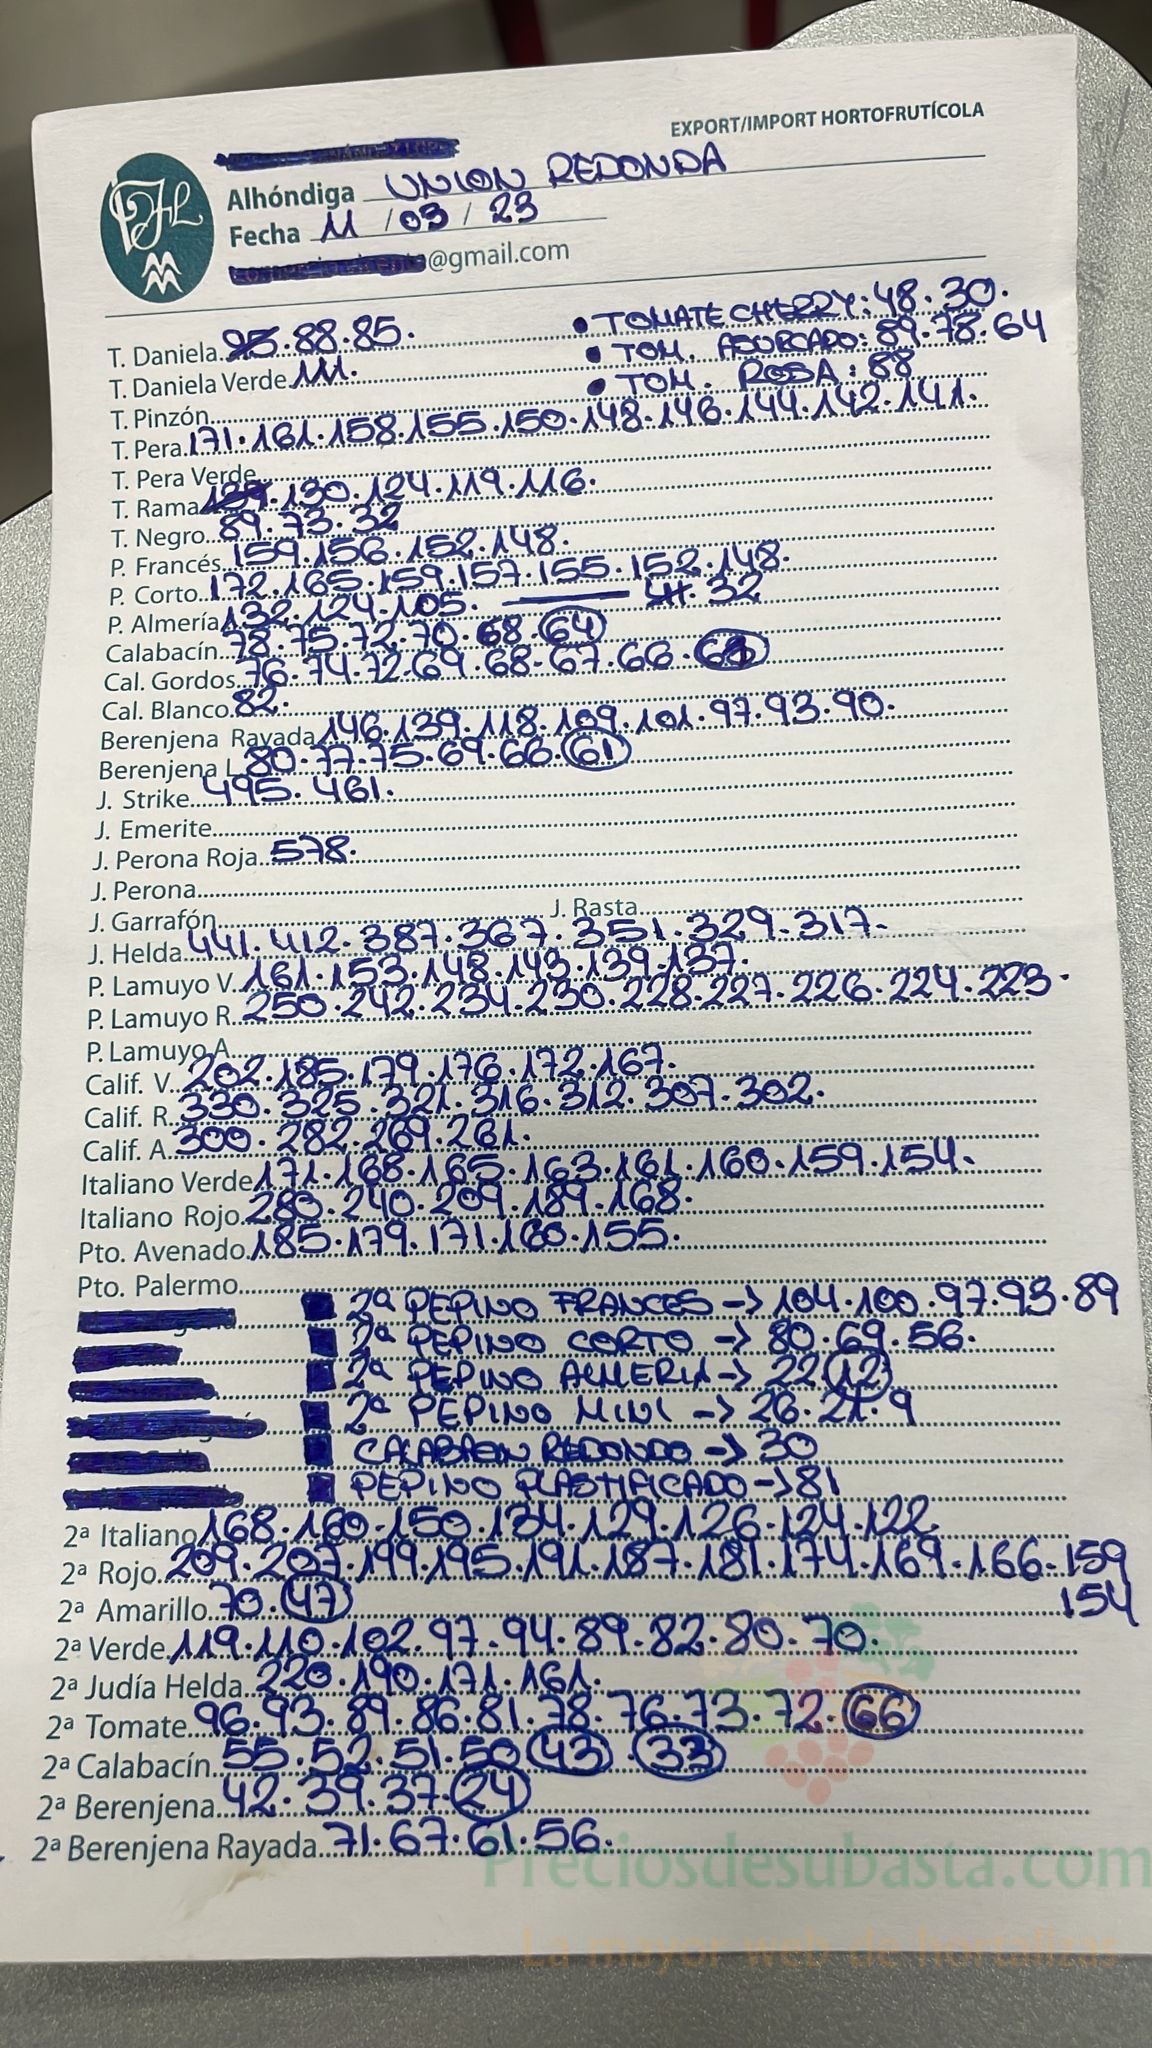 EXPORT/IMPORT HORTOFRUTÍCOLA
Alhóndiga UNION REDONDA
Fecha 11 / 03 / 23
@gmail.com
T. Daniela 93.88.85.
• TOMATE CHERRY: 48.30.
T. Daniela Verde 111.
• TOM. ASURCADO: 89.78.64
T. Pinzón
• TOM. ROSA: 88
T. Pera 171.161.158.155.150.148.146.144.142.141.
T. Pera Verde
T. Rama 130.124.119.116.
T. Negro 89.73.32
P. Francés 159.156.152.148.
P. Corto 172.165.159.157.155.152.148.
P. Almería 132.124.105. 32
Calabacín 78.75.72.70.68.64
Cal. Gordos 76.74.72.69.68.67.66.
Cal. Blanco 82.
Berenjena Rayada 146.139.118.109.101.97.93.90.
Berenjena L 80.77.75.69.66.61
J. Strike 495.461.
J. Emerite
J. Perona Roja 578.
J. Perona
J. Garrafón J. Rasta
J. Helda 441.412.387.367.351.329.317.
P. Lamuyo V. 161.153.148.143.139.137.
P. Lamuyo R. 250.242.234.230.228.227.226.224.223.
P. Lamuyo A
Calif. V. 202.185.179.176.172.167.
Calif. R. 330.325.321.316.312.307.302.
Calif. A. 300.282.269.261.
Italiano Verde 171.168.165.163.161.160.159.154.
Italiano Rojo 280.240.209.189.168.
Pto. Avenado 185.179.171.160.155.
Pto. Palermo
2ª PEPINO FRANCES -> 104.100.97.93.89
2ª PEPINO CORTO -> 80.69.56.
2ª PEPINO ALMERIA -> 22 12
2ª PEPINO MINI -> 26.21.9
CALABACIN REDONDO -> 30
PEPINO PLASTIFICADO -> 81
2ª Italiano 168.160.150.134.129.126.124.122.
2ª Rojo 209.207.199.195.191.187.181.174.169.166.159
154
2ª Amarillo 70.47
2ª Verde 119.110.102.97.94.89.82.80.70.
2ª Judía Helda 220.190.171.161.
2ª Tomate 96.93.89.86.81.78.76.73.72.66
2ª Calabacín 55.52.51.50 43.33
2ª Berenjena 42.39.37.24
2ª Berenjena Rayada 71.67.61.56.
Preciosdesubasta.com
La mayor web de hortalizas